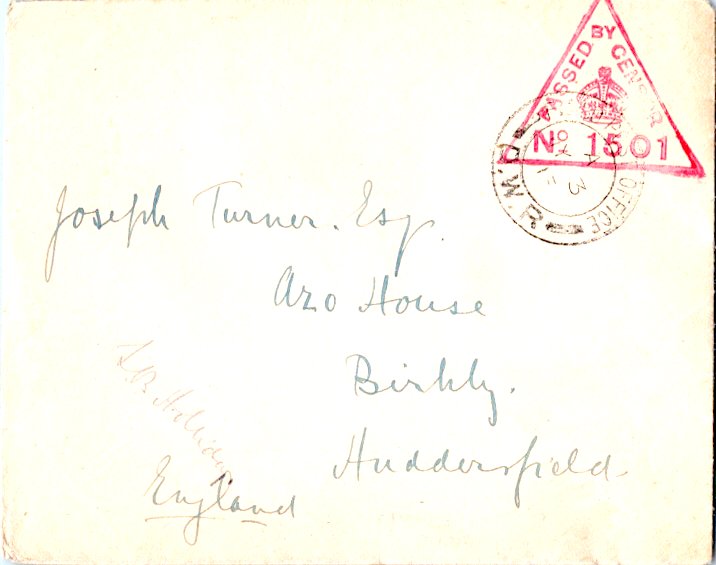 PASSED BY CENSOR
No 1501
OFFICE
Joseph Turner. Esq.
Azo House
Birkby.
Huddersfield
England